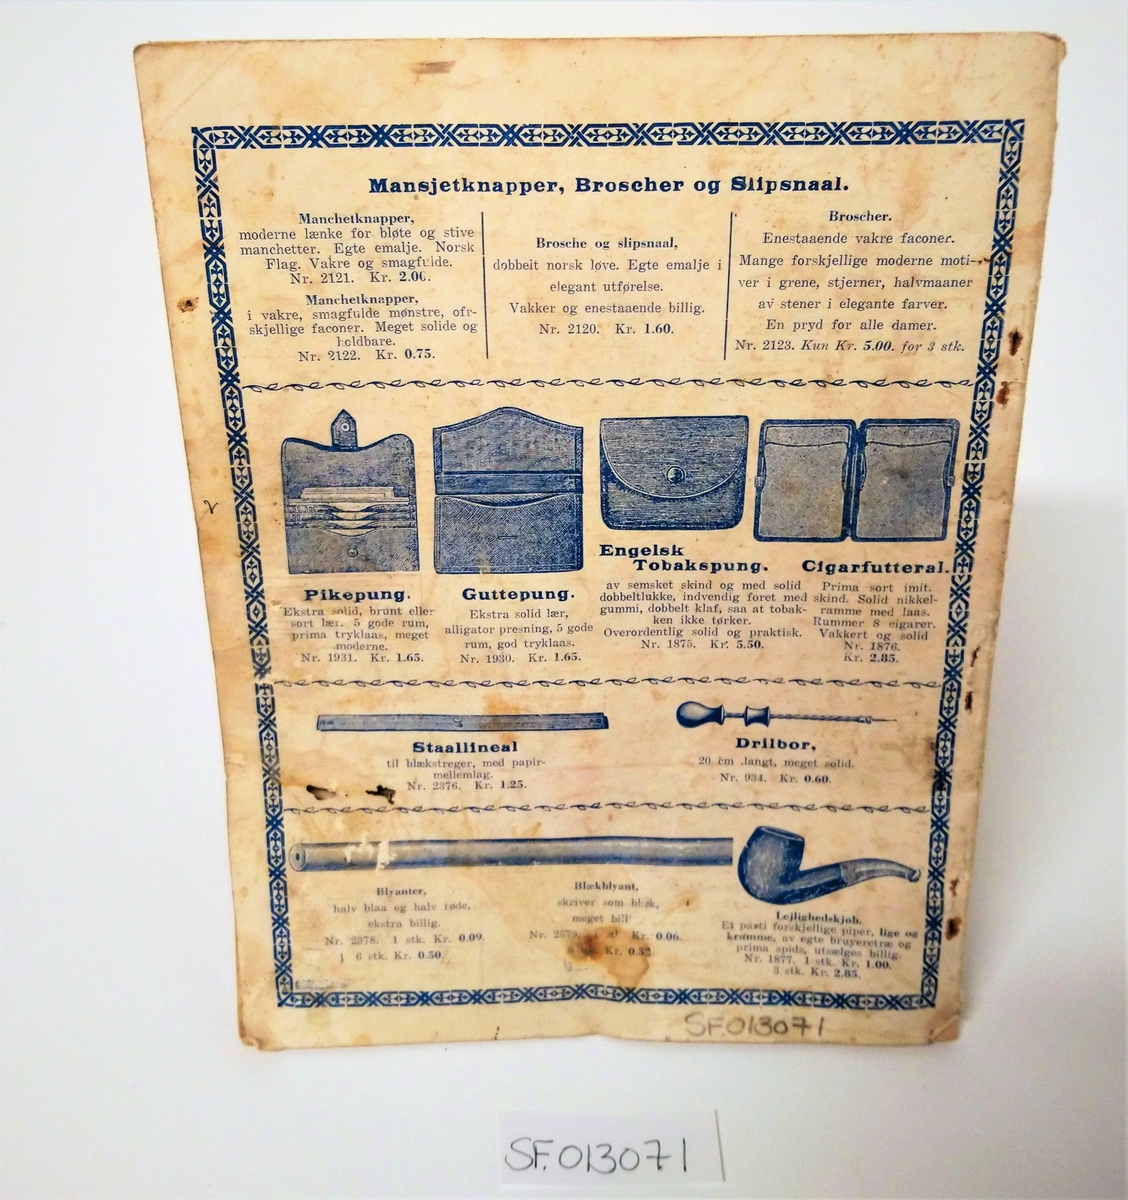 Mansjetknapper, Broscher og Slipsnaal.
Manchetknapper,
moderne lænke for bløte og stive
manchetter. Egte emalje. Norsk
Flag. Vakre og smagfulde.
Nr. 2121. Kr. 2.00.
Manchetknapper,
i vakre, smagfulde mønstre, ofr-
skjellige faconer. Meget solide og
holdbare.
Nr. 2122. Kr. 0.75.
Brosche og slipsnaal,
dobbelt norsk løve. Egte emalje i
elegant utførelse.
Vakker og enestaaende billig.
Nr. 2120. Kr. 1.60.
Broscher.
Enestaaende vakre faconer.
Mange forskjellige moderne moti-
ver i grene, stjerner, halvmaaner
av stener i elegante farver.
En pryd for alle damer.
Nr. 2123. Kun Kr. 5.00. for 3 stk.
Pikepung.
Ekstra solid, brunt eller
sort lær. 5 gode rum,
prima tryklaas, meget
moderne.
Nr. 1931. Kr. 1.65.
Guttepung.
Ekstra solid lær,
alligator presning, 5 gode
rum, god tryklaas.
Nr. 1930. Kr. 1.65.
Engelsk
Tobakspung.
av semsket skind og med solid
dobbeltlukke, indvendig foret med
gummi, dobbelt klaf, saa at tobak-
ken ikke tørker.
Overordentlig solid og praktisk.
Nr. 1875. Kr. 5.50.
Cigarfutteral.
Prima sort imit.
skind. Solid nikkel-
ramme med laas.
Rummer 8 cigarer.
Vakkert og solid
Nr. 1876.
Kr. 2.85.
Staallineal
til blækstreger, med papir-
mellemlag.
Nr. 2376. Kr. 1.25.
Drilbor,
20 cm langt, meget solid.
Nr. 934. Kr. 0.60.
Blyanter,
halv blaa og halv røde,
ekstra billig.
Nr. 2378. 1 stk. Kr. 0.09.
6 stk. Kr. 0.50.
Blækblyant,
skriver som blæk,
meget
Nr. Kr. 0.06.
6 Kr.
Lejlighedskjøb.
Et parti forskjellige piper, lige og
krumme, av egte bruyeretræ og
prima spids, utsælges billig.
Nr. 1877. 1 stk. Kr. 1.00.
3 stk. Kr. 2.85.
SF.013071
SF.013071